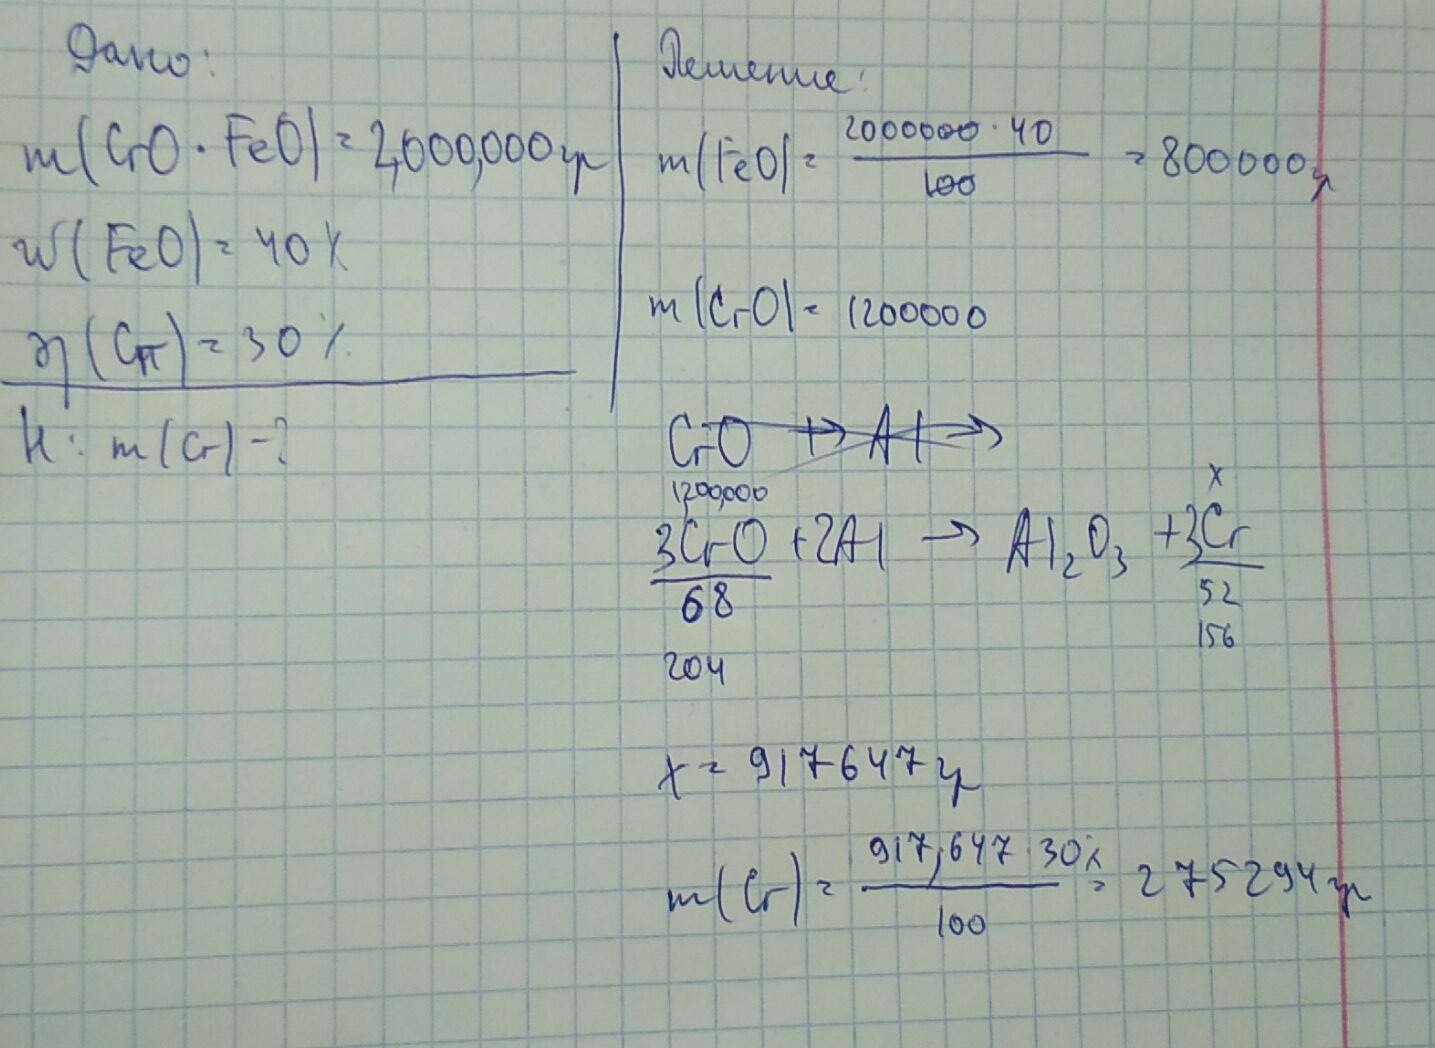 Дано:
m(CrO·FeO)=2,000,000гр
w(FeO)=40%
η(Cr)=30%
Н: m(Cr)-?
Решение:
m(FeO)= 2000000·40 / 100 = 800000г
m(CrO)= 1200000
CrO + Al →
1,200,000 x
3CrO +2Al → Al₂O₃ +3Cr
68 52
204 156
x= 917647гр
m(Cr)= 917,647·30% / 100 = 275294гр